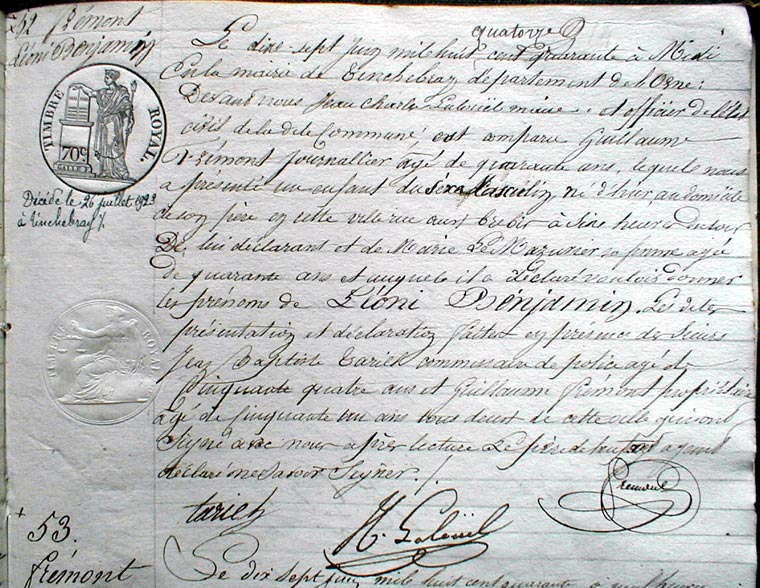 52 Frémont
Léoni Benjamin
TIMBRE ROYAL.
70c
Décédé le 26 juillet 1923
à Tinchebray ./.
TIMBRE ROYAL
quatorze
Le dix-sept Juin mil huit cent quarante à Midi
En la mairie de Tinchebray département de l'Orne:
Devant nous Jean Charles Lelouël maire et officier de l'État
civil de la dite Commune est comparu Guillaume
Frémont Journallier âgé de quarante ans, lequel nous
a présenté un enfant du sexe Masculin, né d'hier au domicile
de son père en cette ville rue aux à six heures du soir
De lui déclarant et de Marie Le Mazurier sa femme agée
de quarante ans et auquel il a déclaré vouloir donner
les prénoms de Léoni Benjamin. Les dites
présentation et déclaration faites en présence des sieurs
Jean Baptiste Tarieh commissaire de police agé de
Cinquante quatre ans et Guillaume Frémont propriétaire
âgé de Cinquante un ans tous deux de cette ville qui ont
Signé avec nous après lecture Le père de l'enfant ayant
déclaré ne savoir Signer. /.
tarieh
Fremont
53.
Frémont
Le dix sept juin mil huit cent quarante à